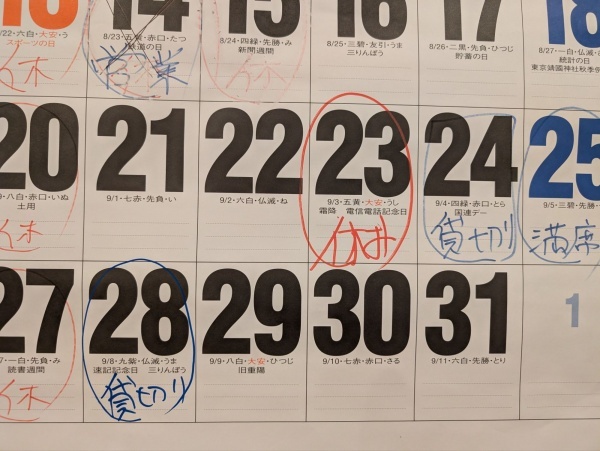 13
/22・六白・大安・う
スポーツの日
休
14
8/23・五黄・赤口・たつ
鉄道の日
営業
15
8/24・四緑・先勝・み
新聞週間
休
16
8/25・三碧・友引・うま
三りんぼう
17
8/26・二黒・先負・ひつじ
貯蓄の日
18
8/27・一白・仏滅・さ
統計の日
東京靖國神社秋季例
20
9・八白・赤口・いぬ
土用
休
21
9/1・七赤・先負・い
22
9/2・六白・仏滅・ね
23
9/3・五黄・大安・うし
霜降 電信電話記念日
休み
24
9/4・四緑・赤口・とら
国連デー
貸切り
25
9/5・三碧・先勝・
満席
27
7・一白・先負・み
読書週間
休
28
9/8・九紫・仏滅・うま
速記記念日 三りんぼう
貸切り
29
9/9・八白・大安・ひつじ
旧重陽
30
9/10・七赤・赤口・さる
31
9/11・六白・先勝・とり
1